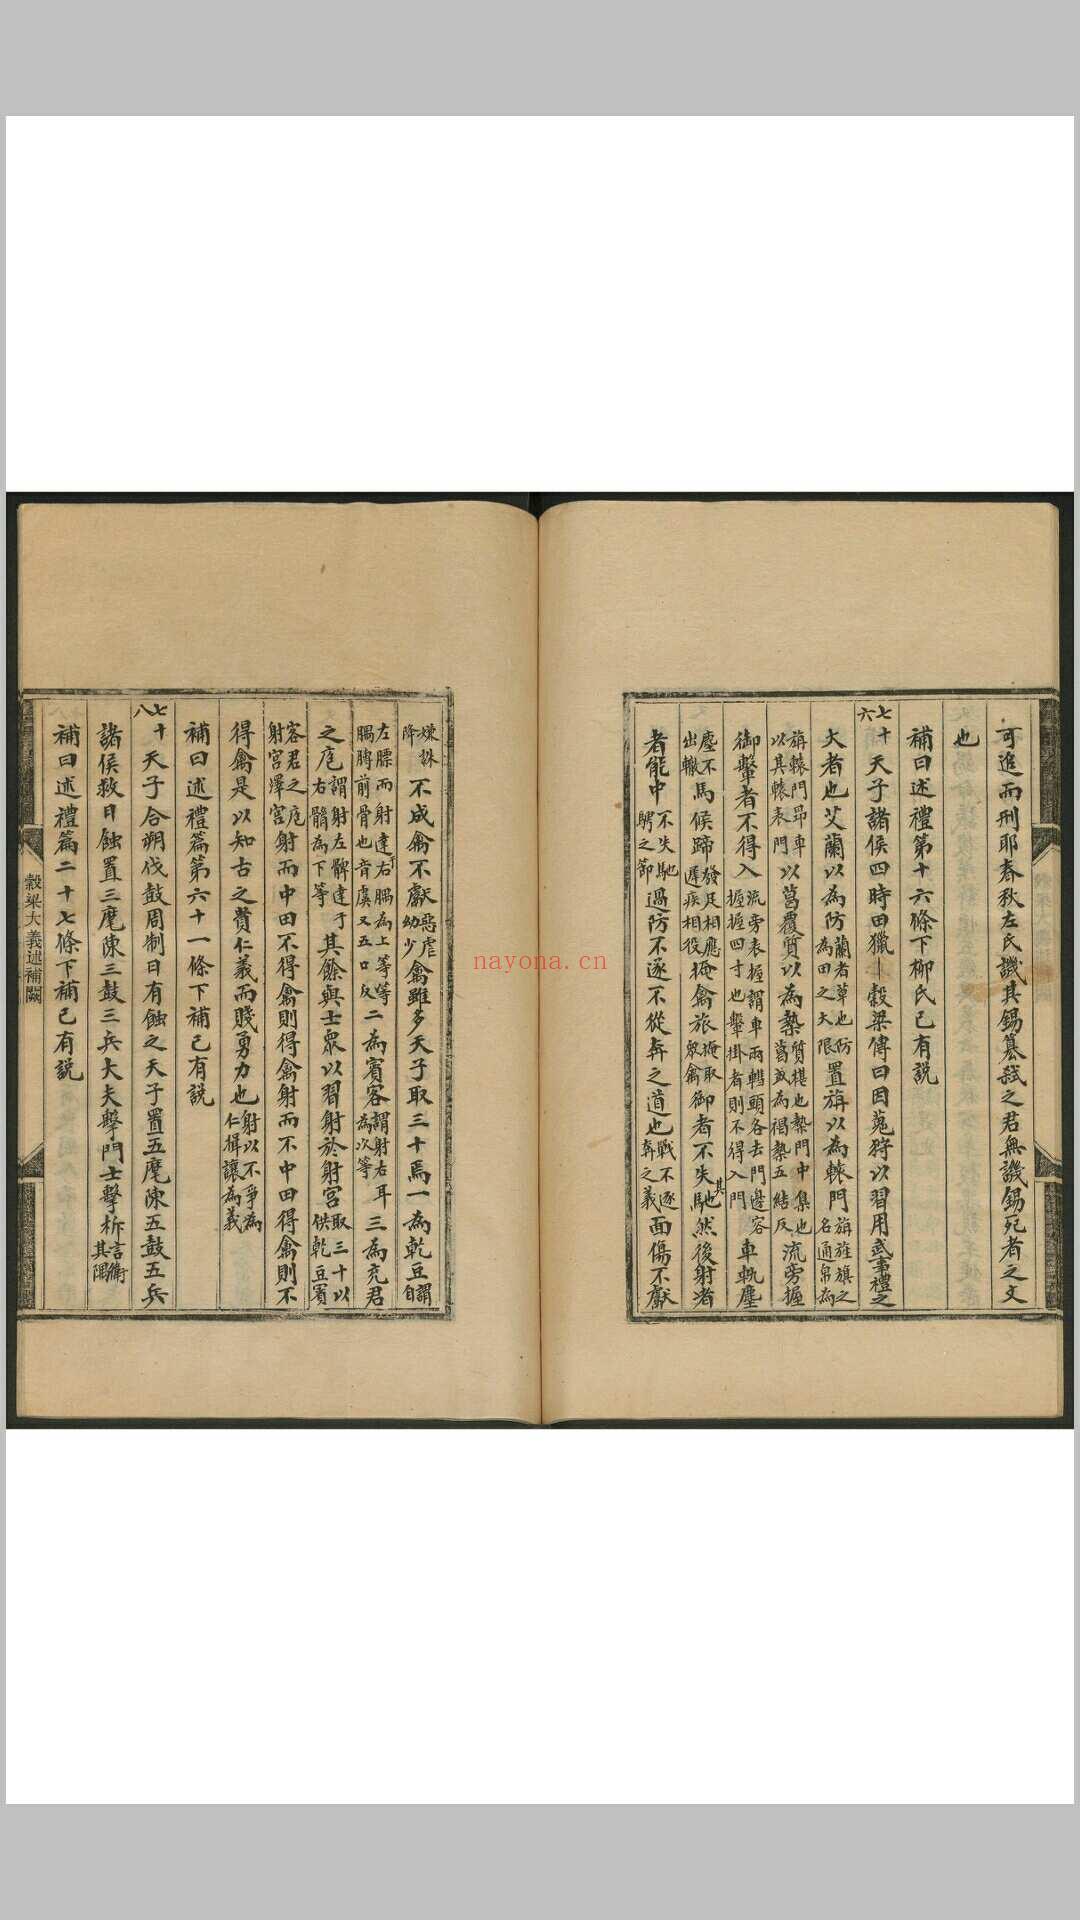 可追而刑耶春秋左氏譏其錫篡弒之君無譏錫死者之文
也
補曰述禮第十六條下柳氏已有說
七十六 天子諸侯四時田獵 穀梁傳曰因蒐狩以習用武事禮之
大者也艾蘭以為防蘭者草也防為田之大限置旃以為轅門旃旌旗之名通帛為
旃轅門昂車以其轅表門以葛覆質以為槷質椹也槷門中臬也葛或為褐槷五結反流旁握
御轚者不得入流旁表握謂車兩轊頭各去門邊容握握四寸也轚掛者則不得入門車軌塵
塵不出轍馬候蹄發足相應遲疾相投掩禽旅掩取眾禽御者不失其馳然後射者
能中不失馳騁之節過防不逐不從奔之道也戰不逐奔之義面傷不獻
嫌誅降不成禽不獻惡虐幼少禽雖多天子取三十焉一為乾豆謂自
左膘而射達于右腢為上等等腢髆前骨也音虞又五口反二為賓客謂射右耳為次等三為充君
之庖謂射左髀達于右䯚為下等其餘與士眾以習射於射宮取三十以供乾豆賓
客君之庖射宮澤宮射而中田不得禽則得禽射而不中田得禽則不
得禽是以知古之貴仁義而賤勇力也射以不爭為仁揖讓為義
補曰述禮篇第六十一條下補已有說
七十八 天子合朔伐鼓周制日有蝕之天子置五麾陳五鼓五兵
諸侯救日蝕置三麾陳三鼓三兵大夫擊門士擊柝言衝其隅
補曰述禮篇二十七條下補已有說
穀梁大義述補闕
nayona.cn